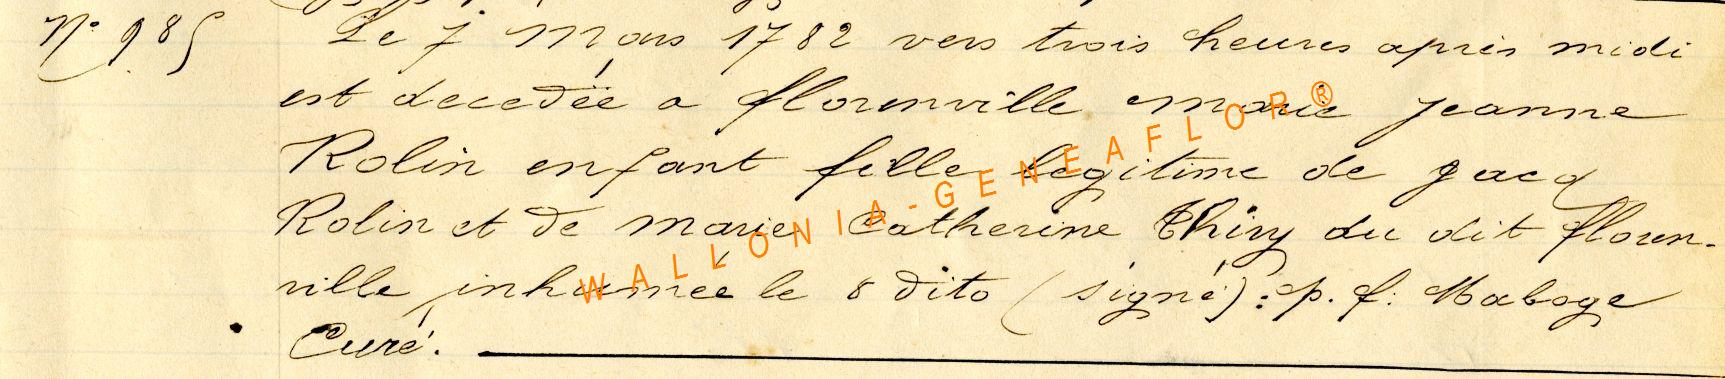 N° 985 Le 7 Mars 1782 vers trois heures après midi
est decedée a florenville marie jeanne
Rolin enfant fille legitime de jacq
Rolin et de marie Catherine Thiry du dit floren-
ville, inhumée le 8 dito (signé): p. f. Maboge
Curé.
WALLONIA-GENEAFLOR®